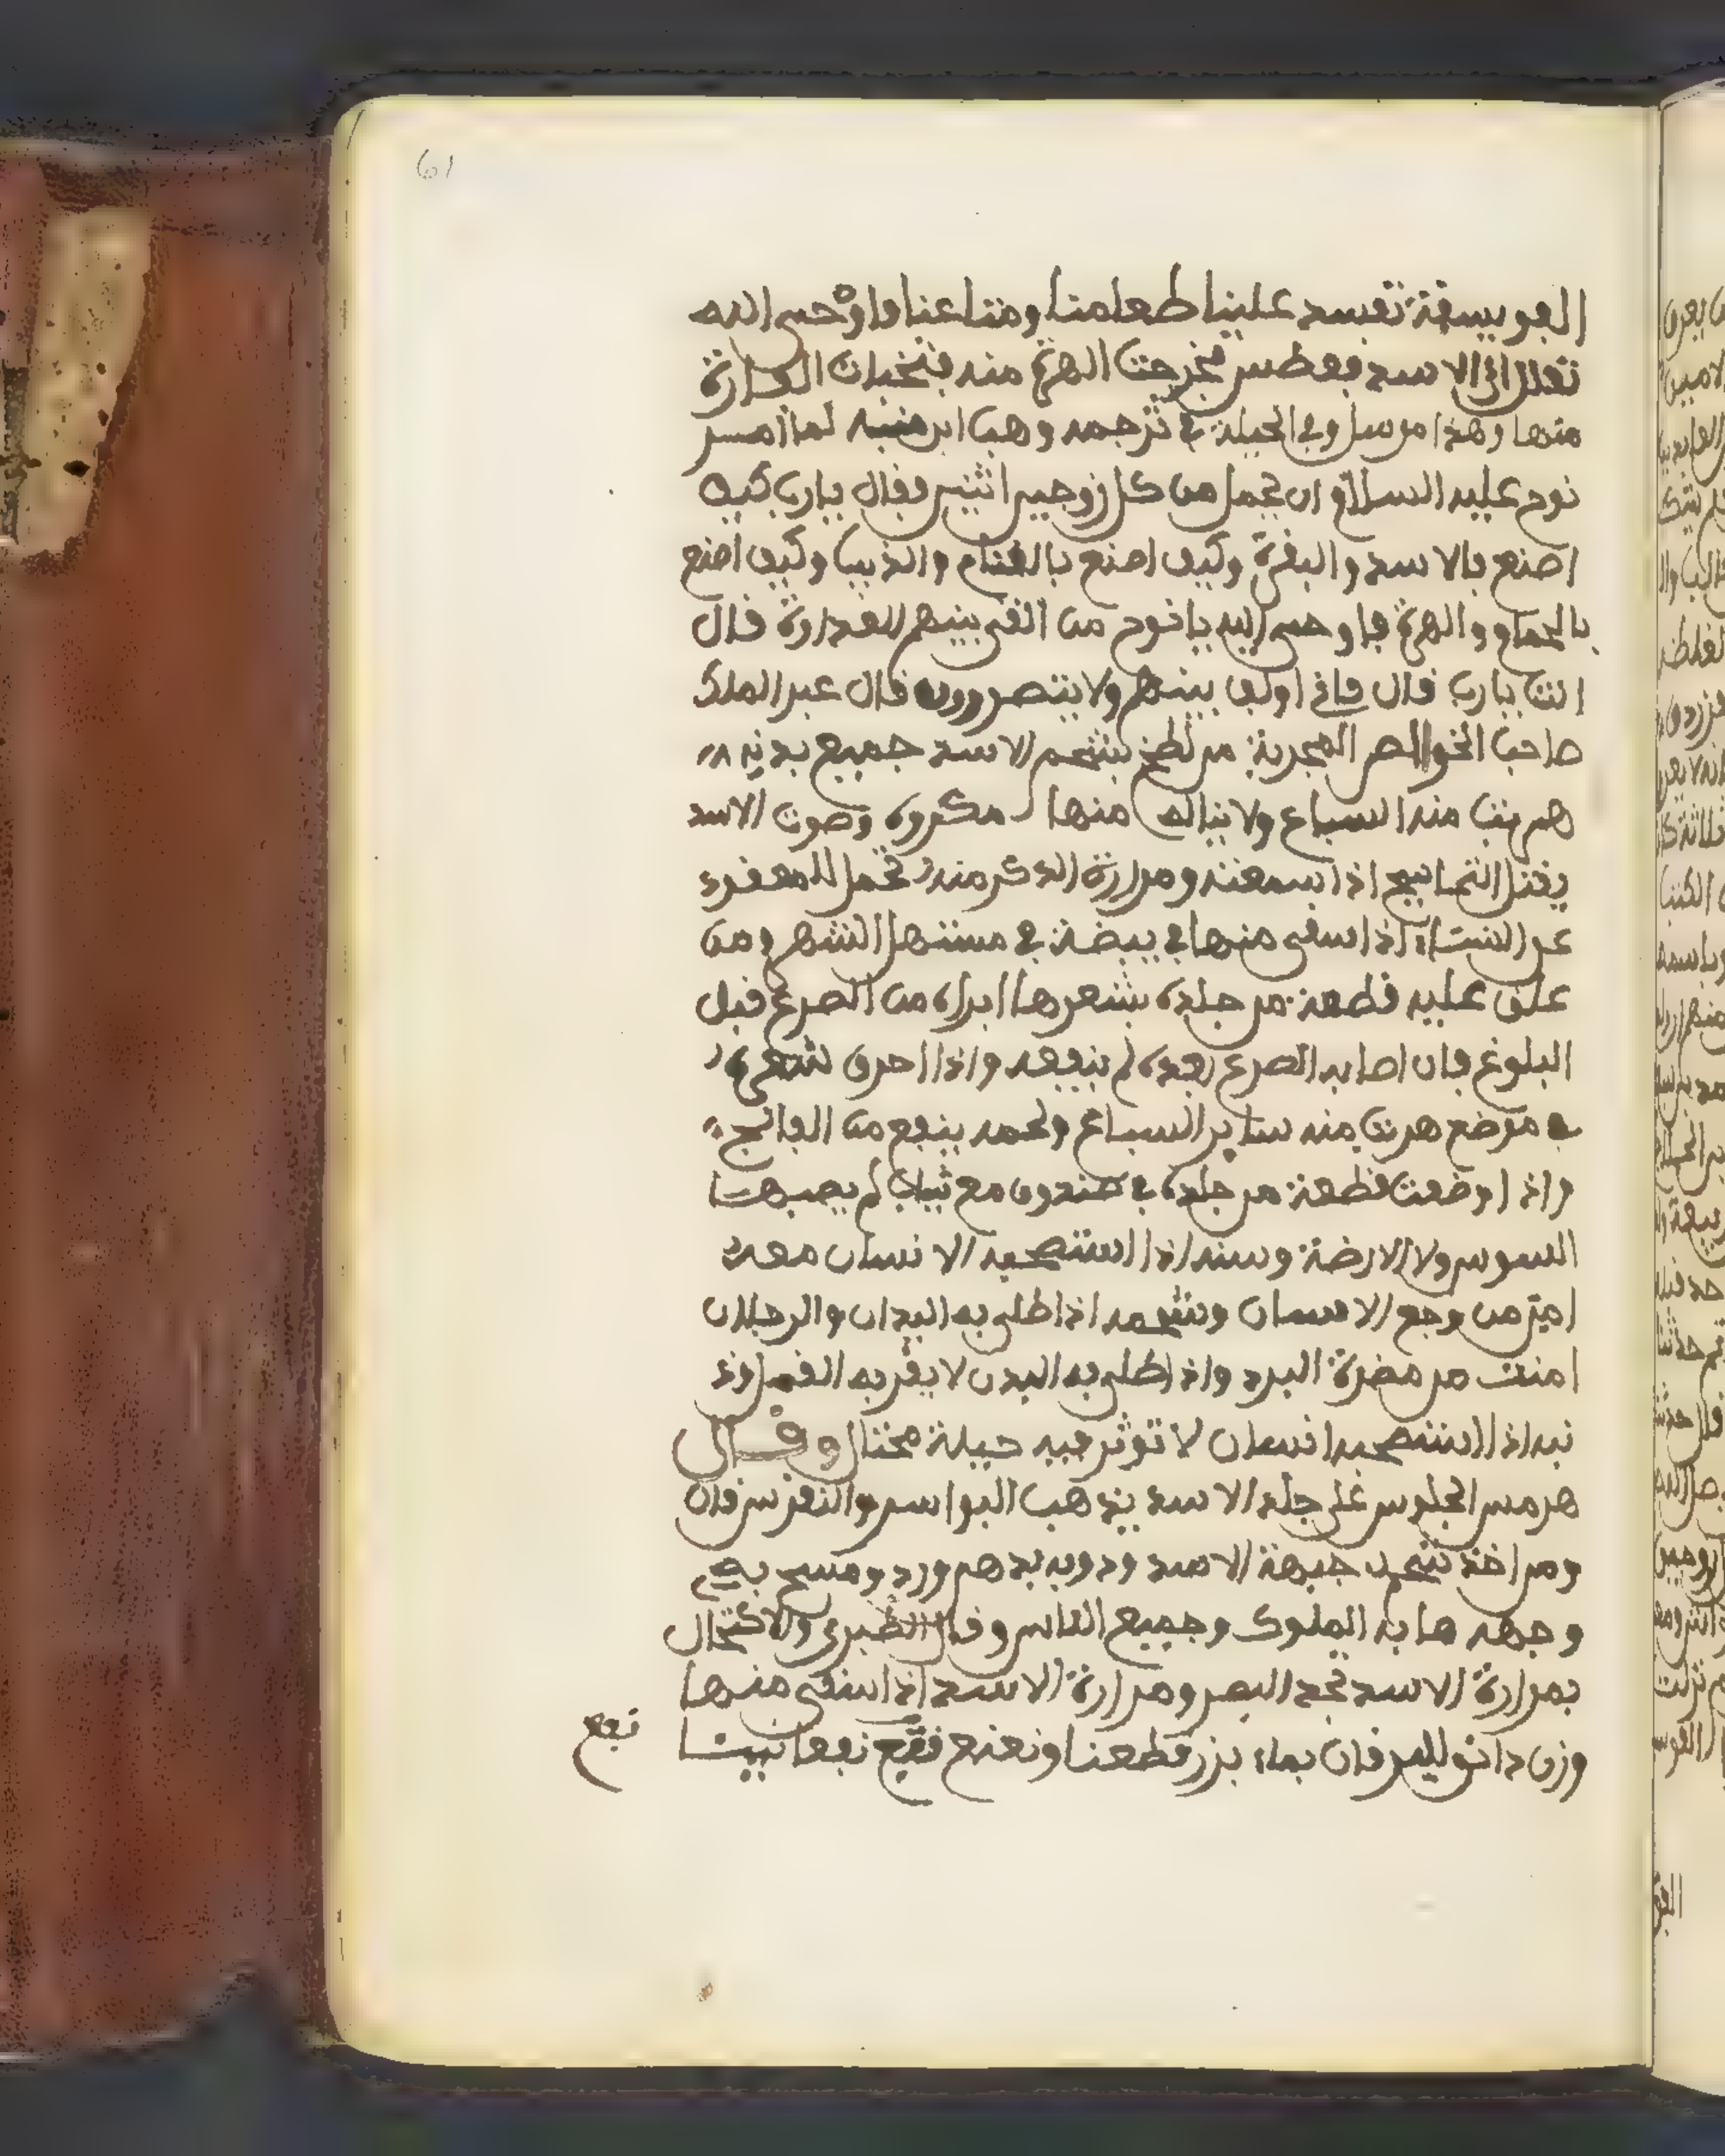 61
الفويسقة تفسد علينا طعامنا ومتاعنا فاوحى الله
تعلى الى الاسد فعطس فخرجت الهرة منه فتخبات الفارة
منها وهذا مرسل وفي الحيلة في ترجمه وهب ابن منبه لما امر
نوح عليه السلام ان يحمل من كل زوجين اثنين فقال يارب كيف
اصنع بالاسد والبقرة وكيف اصنع بالغنام والذيب وكيف اصنع
بالحمام والهرة فاوحى اليه يانوح من القى بينهم العداوة قال
انت يارب قال فاني اولف بينهم ولا يتضررون قال عبد الملك
صاحب الخواص المجربة من لطخ بشحم الاسد جميع بدنه
هربت منه السباع ولا يناله منها مكروه وصوت الاسد
يقتل التماسيح اذا سمعته ومرارة الذكر منه تحمل المعقود
عن النساء اذا سقى منها في بيضة في مستهل الشهر ومن
علق عليه قطعة من جلده بشعرها ابراه من الصرع قبل
البلوغ فان اصابه الصرع بعده لم ينفعه واذا احرق شعره
في موضع هربت منه ساير السباع ولحمه ينفع من الفالج
واذا وضعت قطعة من جلده في صندوق مع ثياب لم يصبها
السوس ولا الارضة وسنه اذا استصحبه الانسان معه
امن من وجع الاسنان وشحمه اذا طلى به اليدان والرجلان
امنت من مضرة البرد واذا طلى به البدن لا يقربه القمل وذ
نبه اذا استصحبه انسان لا توثر فيه حيلة محتال وقال
هرمس الجلوس على جلد الاسد يذهب البواسر والنقرس قال
ومن اخذ شحم جبهة الاسد وذوبه بدهم ورد ومسح به
وجهه هابه الملوك وجميع الناس وقال الطبري والاكتحال
بمرارة الاسد تحد البصر ومرارة الاسد اذا سقى منها
وزن دانق لليرقان بماء بزر قطعنا ونعنع فقيع نفعا بينا
نفع